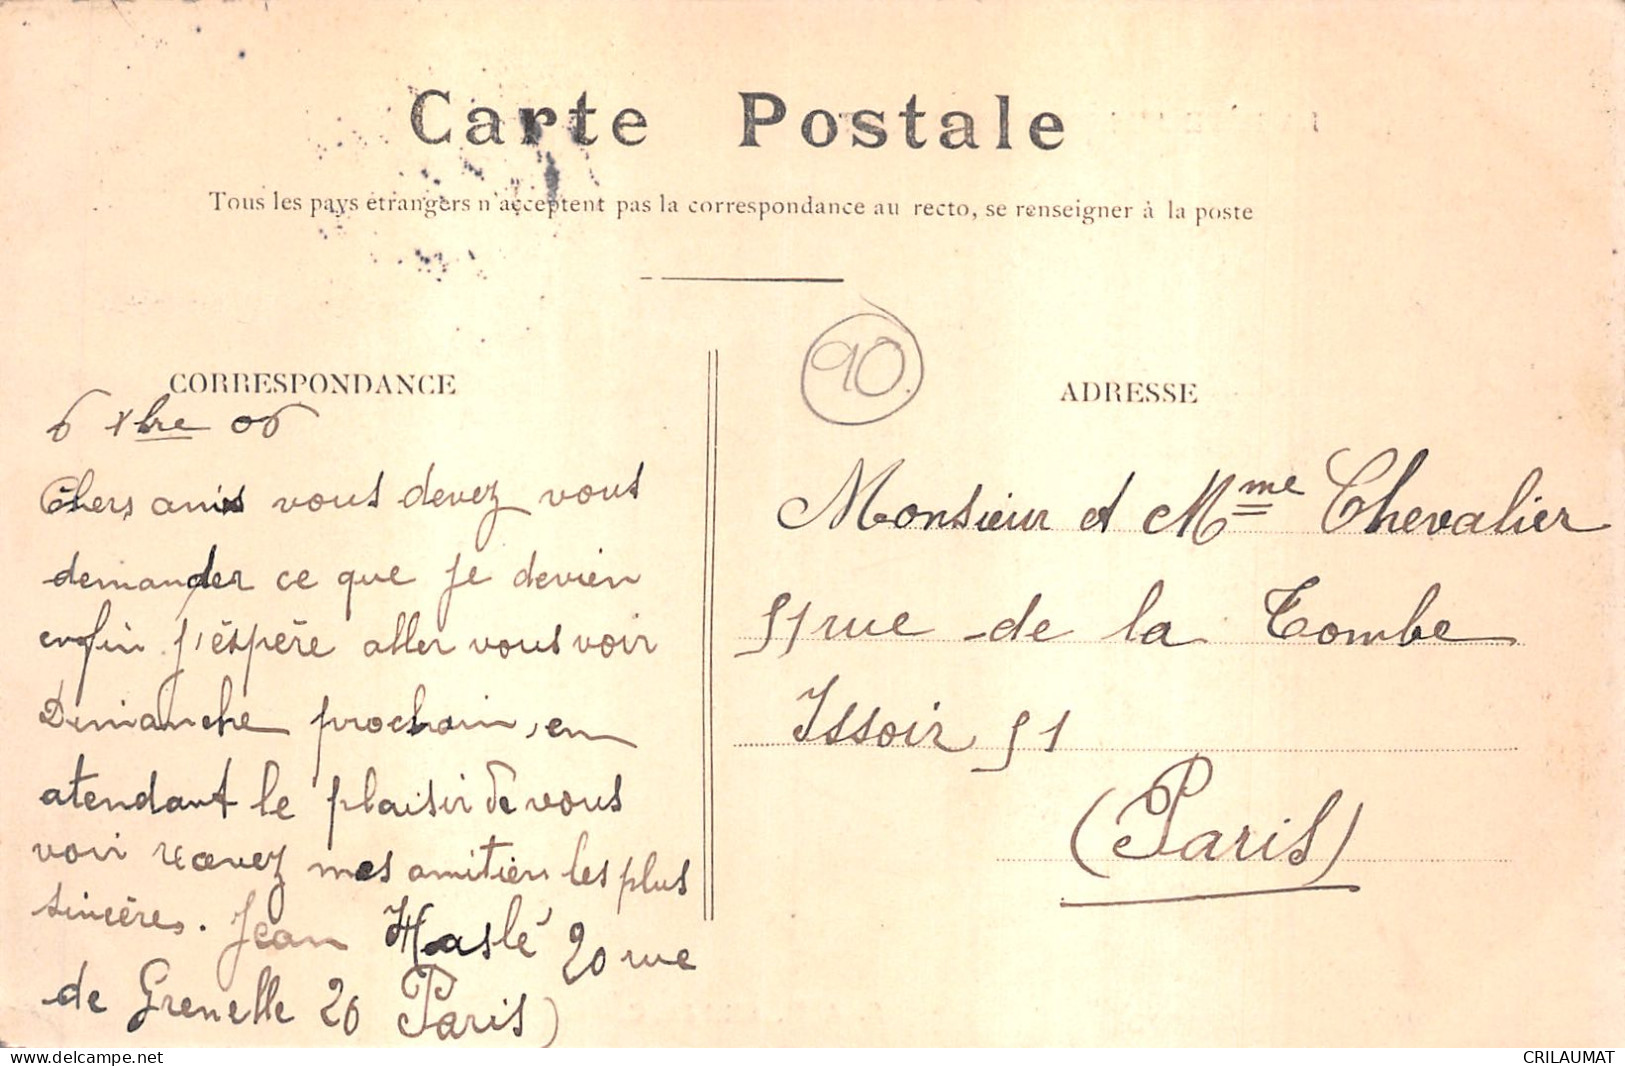 Carte Postale
Tous les pays étrangers n'acceptent pas la correspondance au recto, se renseigner à la poste
90
CORRESPONDANCE
6 Xbre 06
Chers amis vous devez vous
demander ce que je devien
enfin j'éspére aller vous voir
Dimanche prochain, en
atendant le plaisir de vous
voir recevez mes amitiers les plus
sincères. Jean Haslé 20 rue
de Grenelle 20 Paris)
ADRESSE
Monsieur et Mme Chevalier
51 rue de la Tombe
Issoir 51
(Paris)
www.delcampe.net
CRILAUMAT